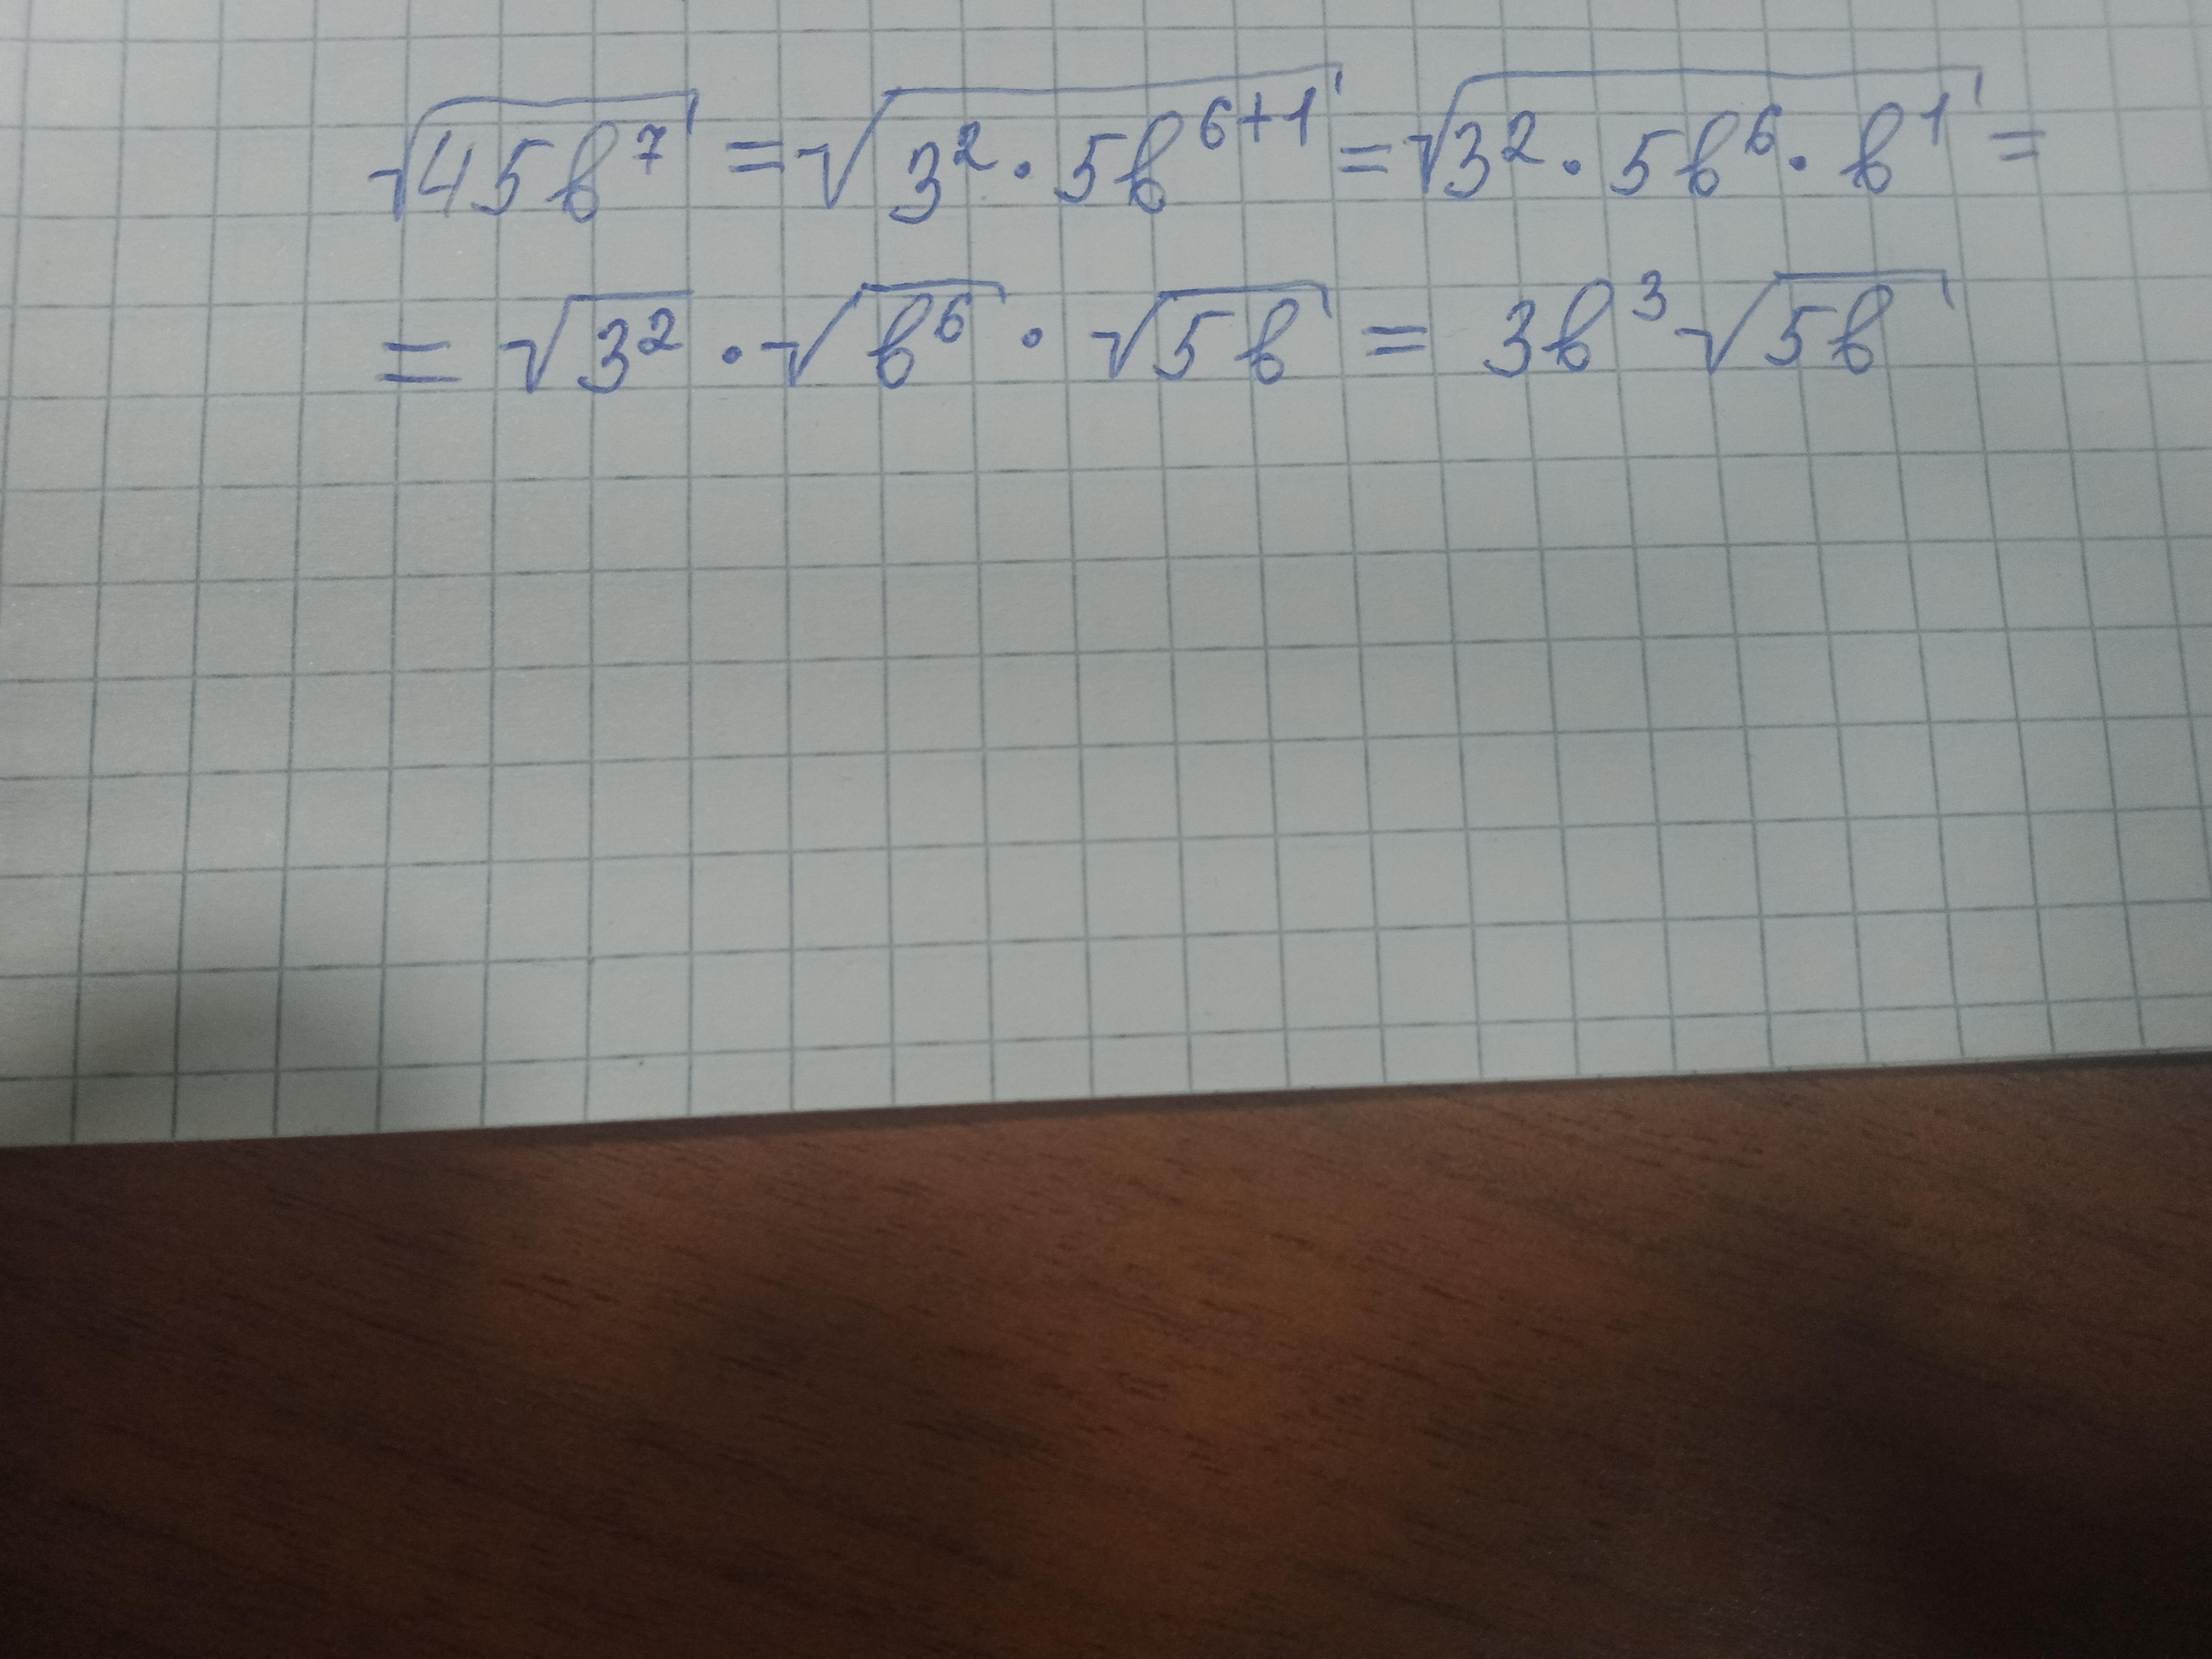 √45b⁷ = √3² · 5b⁶⁺¹ = √3² · 5b⁶ · b¹ =
= √3² · √b⁶ · √5b = 3b³√5b